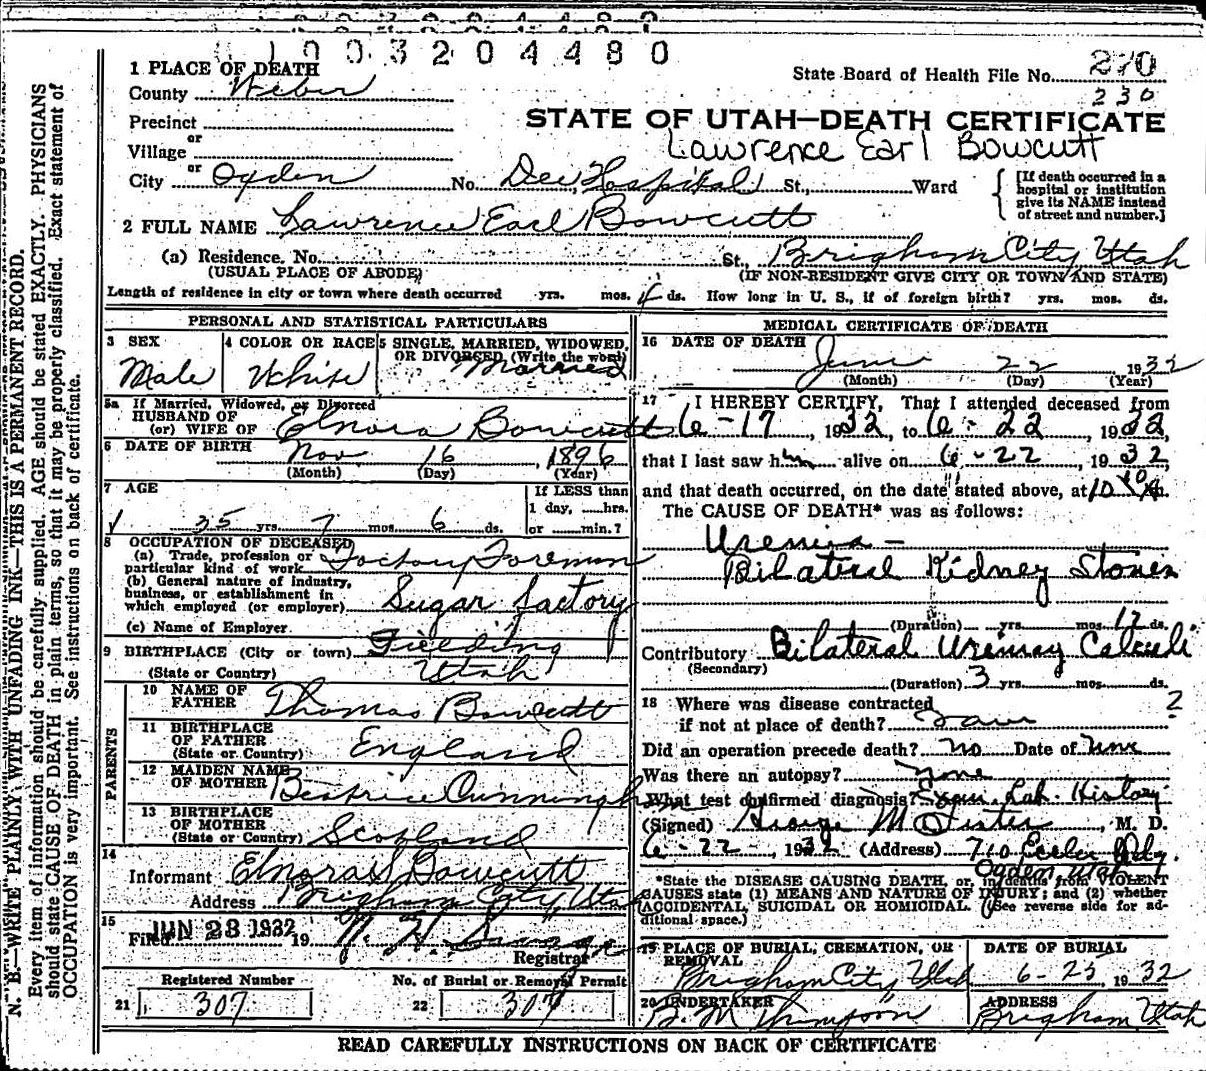 1003204480
1 PLACE OF DEATH
State Board of Health File No. 270
County Weber
230
Precinct
STATE OF UTAH—DEATH CERTIFICATE
or
Village
Lawrence Earl Bowcutt
or
City Ogden No. Dee Hospital St., Ward
[If death occurred in a hospital or institution give its NAME instead of street and number.]
2 FULL NAME Lawrence Earl Bowcutt
(a) Residence. No. St., Brigham City Utah
(USUAL PLACE OF ABODE) (IF NON-RESIDENT GIVE CITY OR TOWN AND STATE)
Length of residence in city or town where death occurred yrs. mos. ds. How long in U. S., if of foreign birth? yrs. mos. ds.
PERSONAL AND STATISTICAL PARTICULARS
3 SEX 4 COLOR OR RACE 5 SINGLE, MARRIED, WIDOWED,
OR DIVORCED, (Write the word)
Male White Married
5a If Married, Widowed, or Divorced
HUSBAND OF
(or) WIFE OF Elnora Bowcutt
6 DATE OF BIRTH Nov 16, 1896
(Month) (Day) (Year)
7 AGE If LESS than
1 day, hrs.
35 yrs. 7 mos. 6 ds. or min.?
8 OCCUPATION OF DECEASED
(a) Trade, profession or
particular kind of work Factory Foreman
(b) General nature of industry,
business, or establishment in
which employed (or employer) Sugar factory
(c) Name of Employer
9 BIRTHPLACE (City or town) Fielding
(State or Country) Utah
PARENTS
10 NAME OF
FATHER Thomas Bowcutt
11 BIRTHPLACE
OF FATHER
(State or Country) England
12 MAIDEN NAME
OF MOTHER Beatrice Cunningham
13 BIRTHPLACE
OF MOTHER
(State or Country) Scotland
14
Informant Elnora S Bowcutt
Address Brigham City Utah
15
Filed JUN 23 1932 19
Registrar
Registered Number No. of Burial or Removal Permit
21 307 22 307
MEDICAL CERTIFICATE OF DEATH
16 DATE OF DEATH
June 22 1932
(Month) (Day) (Year)
17 I HEREBY CERTIFY, That I attended deceased from
6-17, 1932, to 6-22 1932,
that I last saw him alive on 6-22, 1932,
and that death occurred, on the date stated above, at 10
The CAUSE OF DEATH* was as follows:
Uremia -
Bilateral Kidney Stones
(Duration) yrs. mos. ds.
Contributory Bilateral Urinary Calculi
(Secondary)
(Duration) 3 yrs. mos. ds.
18 Where was disease contracted ?
if not at place of death?
Did an operation precede death? no Date of
Was there an autopsy? none
What test confirmed diagnosis? Exam. Lab. History
(Signed) George M Fister, M. D.
6-22, 1932 (Address) 710 Eccles Bldg.
Ogden Utah
*State the DISEASE CAUSING DEATH, or, in deaths from VIOLENT
CAUSES state (1) MEANS AND NATURE OF INJURY; and (2) whether
ACCIDENTAL, SUICIDAL OR HOMICIDAL. (See reverse side for ad-
ditional space.)
19 PLACE OF BURIAL, CREMATION, OR
REMOVAL DATE OF BURIAL
Brigham City Utah 6-25 1932
20 UNDERTAKER ADDRESS
B. M Thompson Brigham Utah
READ CAREFULLY INSTRUCTIONS ON BACK OF CERTIFICATE
N. B.—WRITE PLAINLY WITH UNFADING INK—THIS IS A PERMANENT RECORD.
Every item of information should be carefully supplied. AGE should be stated EXACTLY. PHYSICIANS
should state CAUSE OF DEATH in plain terms, so that it may be properly classified. Exact statement of
OCCUPATION is very important. See instructions on back of certificate.